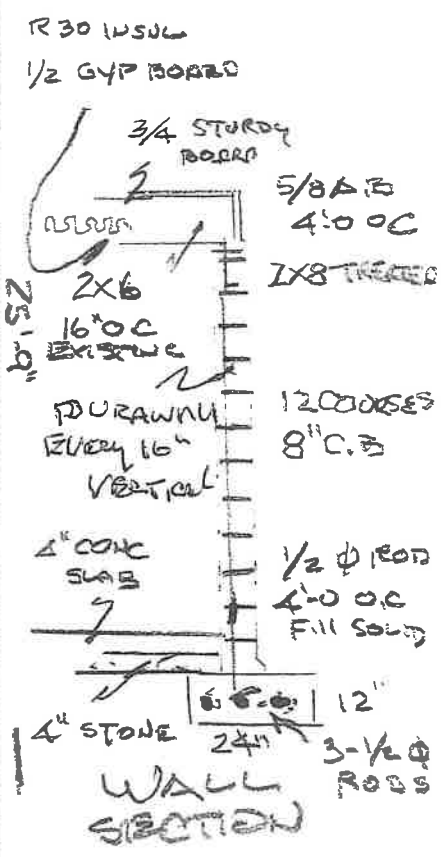 R 30 INSUL
1/2 GYP BOARD
3/4 STURDY
BOARD
5/8 A.B
4'0 OC
2X8 TREATED
2X6
16" OC
EXISTING
DURAWALL
EVERY 16"
VERTICAL
12 COURSES
8" C.B
4" CONC
SLAB
1/2 Φ ROD
4'-0 O.C
Fill SOLID
4" STONE
12"
24"
3-1/2 Φ
RODS
WALL
SECTION